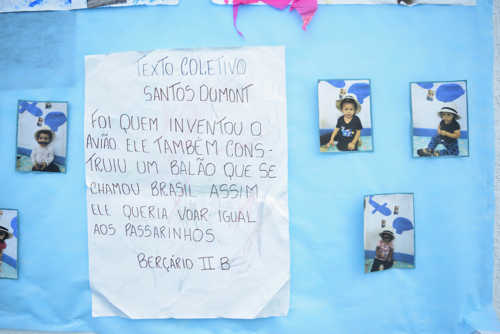 TEXTO COLETIVO
SANTOS DUMONT
FOI QUEM INVENTOU O
AVIÃO. ELE TAMBÉM CONS-
TRUIU UM BALÃO QUE SE
CHAMOU BRASIL ASSIM
ELE QUERIA VOAR IGUAL
AOS PASSARINHOS.
BERÇÁRIO II B